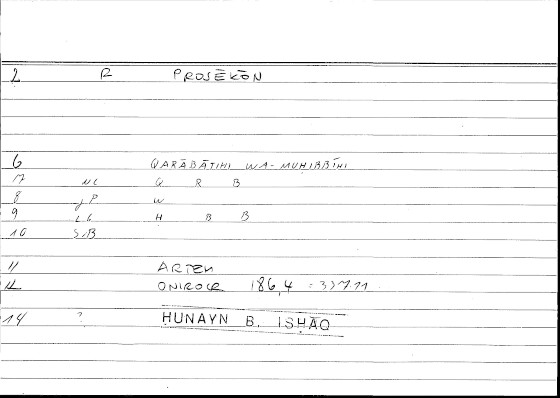 2 R PROSĒKŌN
6 QARĀBĀTIHI WA-MUHIBBĪHI
7 NC Q R B
8 JP W
9 LG H B B
10 S/B
11 ARTEM
12 ONIROCR 186,4 = 337,11
14 ? HUNAYN B. ISHĀQ